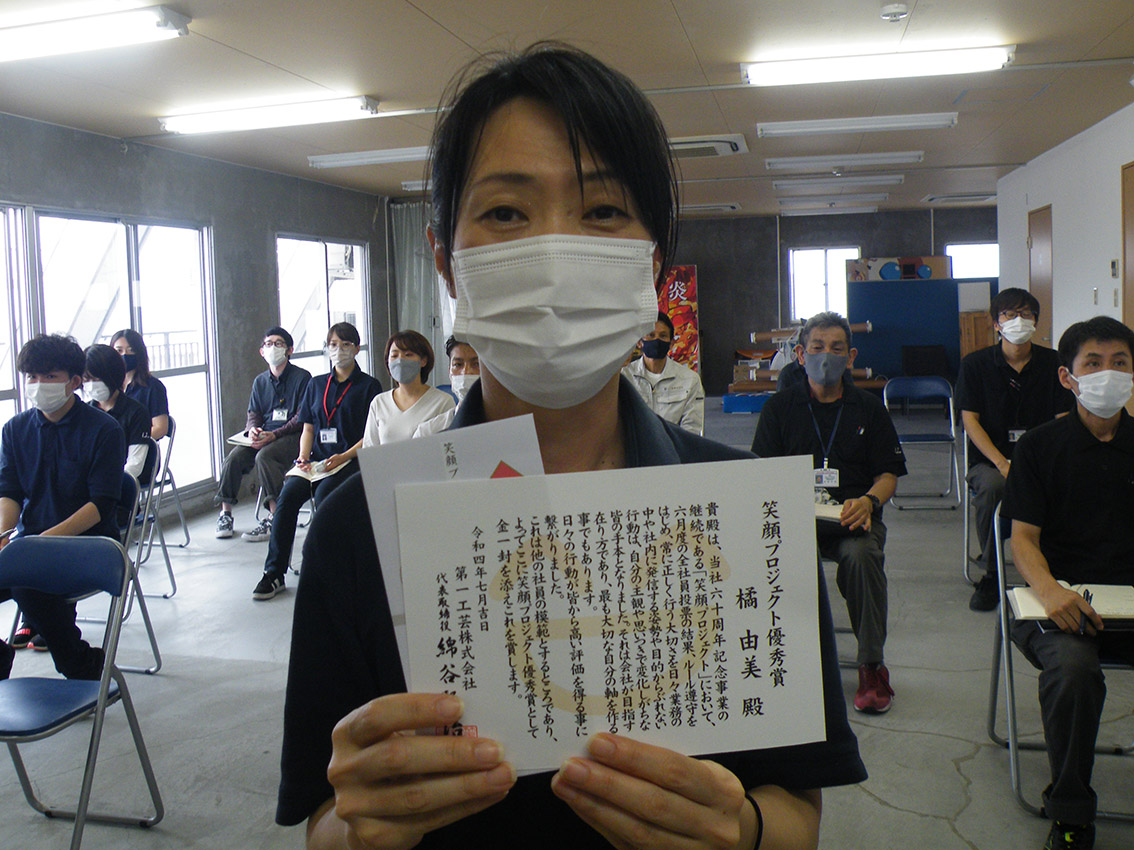 笑顔プロジェクト優秀賞
橘 由美 殿
貴殿は、当社六十周年記念事業の
継続である「笑顔プロジェクト」において、
六月度の全社員投票の結果、ルール遵守を
はじめ、常に正しく行う大切さを日々業務の
中や社内に発信する姿勢や目的からぶれない
行動は、自分の主観や思いつきで変化しがちな
皆の手本となりました。それは会社が目指す
在り方であり、最も大切な自分の軸を作る
事でもあります。
日々の行動が皆から高い評価を得る事に
繋がりました。
これは他の社員の模範とするところであり、
よってここに笑顔プロジェクト優秀賞として
金一封を添えこれを賞します。
令和四年七月吉日
第一工芸株式会社
代表取締役 綿谷
笑顔プ
炎